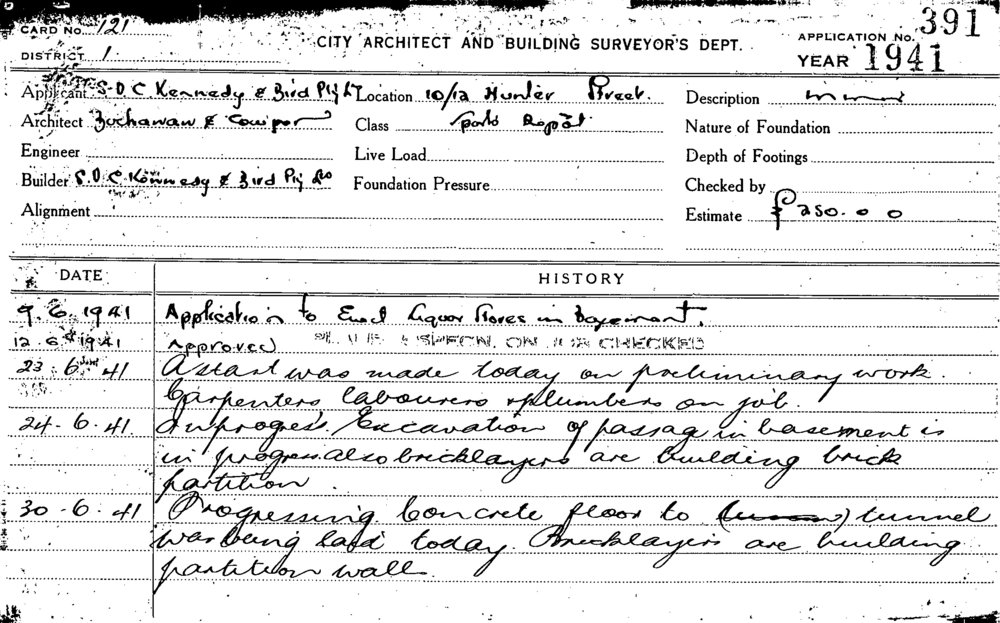 CARD No. 121
DISTRICT 1
CITY ARCHITECT AND BUILDING SURVEYOR'S DEPT.
APPLICATION No. 391
YEAR 1941
Applicant S.D.C. Kennedy & Bird Pty Location 10/12 Hunter Street. Description
Architect & Cowper Class Nature of Foundation
Engineer Live Load Depth of Footings
Builder S.D.C Kennedy & Bird Pty Foundation Pressure Checked by
Alignment Estimate £250.0 0
DATE HISTORY
9.6.1941 Application to Erect Liquor Stores in Basement.
12.6.1941 Approved SPECN. ON JOB CHECKED
23.6.41 A start was made today on preliminary work.
Carpenters labourers & plumbers on job.
24-6-41. In progress. Excavation of passag in basement is
in progress also bricklayers are building brick
partition.
30-6-41 Progressing Concrete floor to tunnel
was being laid today. Bricklayers are building
partition wall.